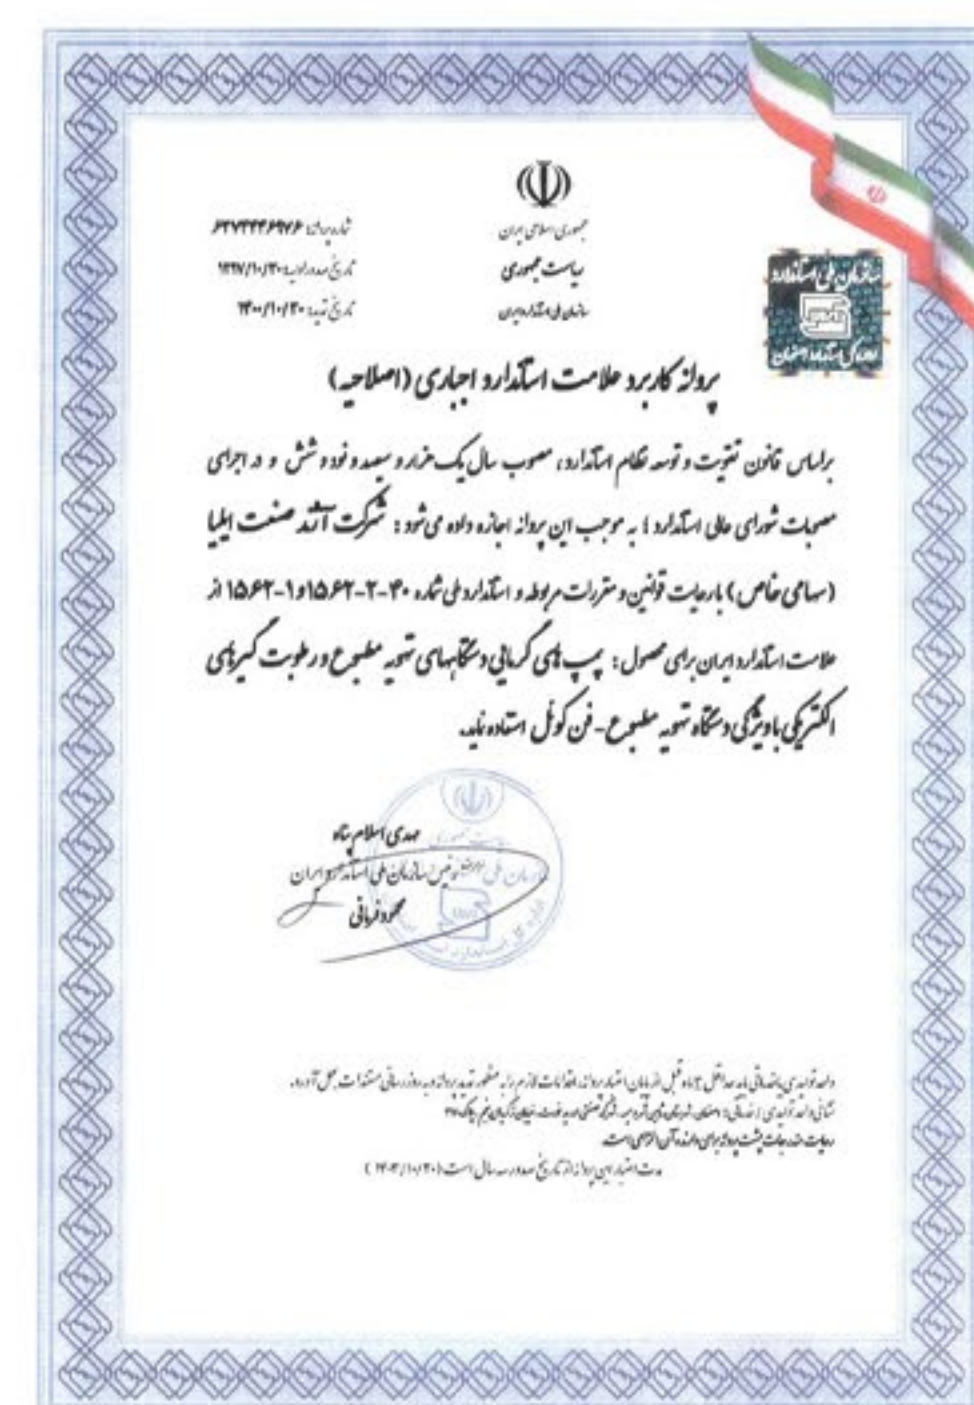 جمهوری اسلامی ایران
ریاست جمهوری
سازمان ملی استاندارد ایران
شماره پروانه: ۶۲۷۳۴۴۶۹۷۶
تاریخ صدور اولیه: ۱۳۹۷/۱۰/۳۰
تاریخ تمدید: ۱۴۰۰/۱۰/۳۰
سازمان ملی استاندارد
اداره کل استاندارد اصفهان
پروانه کاربرد علامت استاندارد اجباری (اصلاحیه)
براساس قانون تقویت و توسعه نظام استاندارد، مصوب سال یک هزار و سیصد و نود و شش و در اجرای
مصوبات شورای عالی استاندارد؛ به موجب این پروانه اجازه داده می شود: شرکت آتند صنعت ایلیا
(سهامی خاص) با رعایت قوانین و مقررات مربوطه و استاندارد ملی شماره ۴۰-۲-۱۵۶۲و۱-۱۵۶۲ از
علامت استاندارد ایران برای محصول: پمپ های گرمایی دستگاههای تهویه مطبوع و رطوبت گیرهای
الکتریکی با ویژگی دستگاه تهویه مطبوع - فن کوئل استفاده نماید.
مهدی اسلام پناه
سازمان ملی استاندارد ایران
محمود فرمانی
واحد تولیدی یا خدماتی باید حداقل ۳ ماه قبل از پایان اعتبار پروانه، اقدامات لازم را به منظور تمدید پروانه و به روز رسانی مستندات بعمل آورد.
نشانی واحد تولیدی / خدماتی: اصفهان، شهرستان
رعایت مندرجات پشت پروانه برای دارنده آن الزامی است.
مدت اعتبار این پروانه از تاریخ صدور سه سال است (۱۴۰۳/۱۰/۳۰)